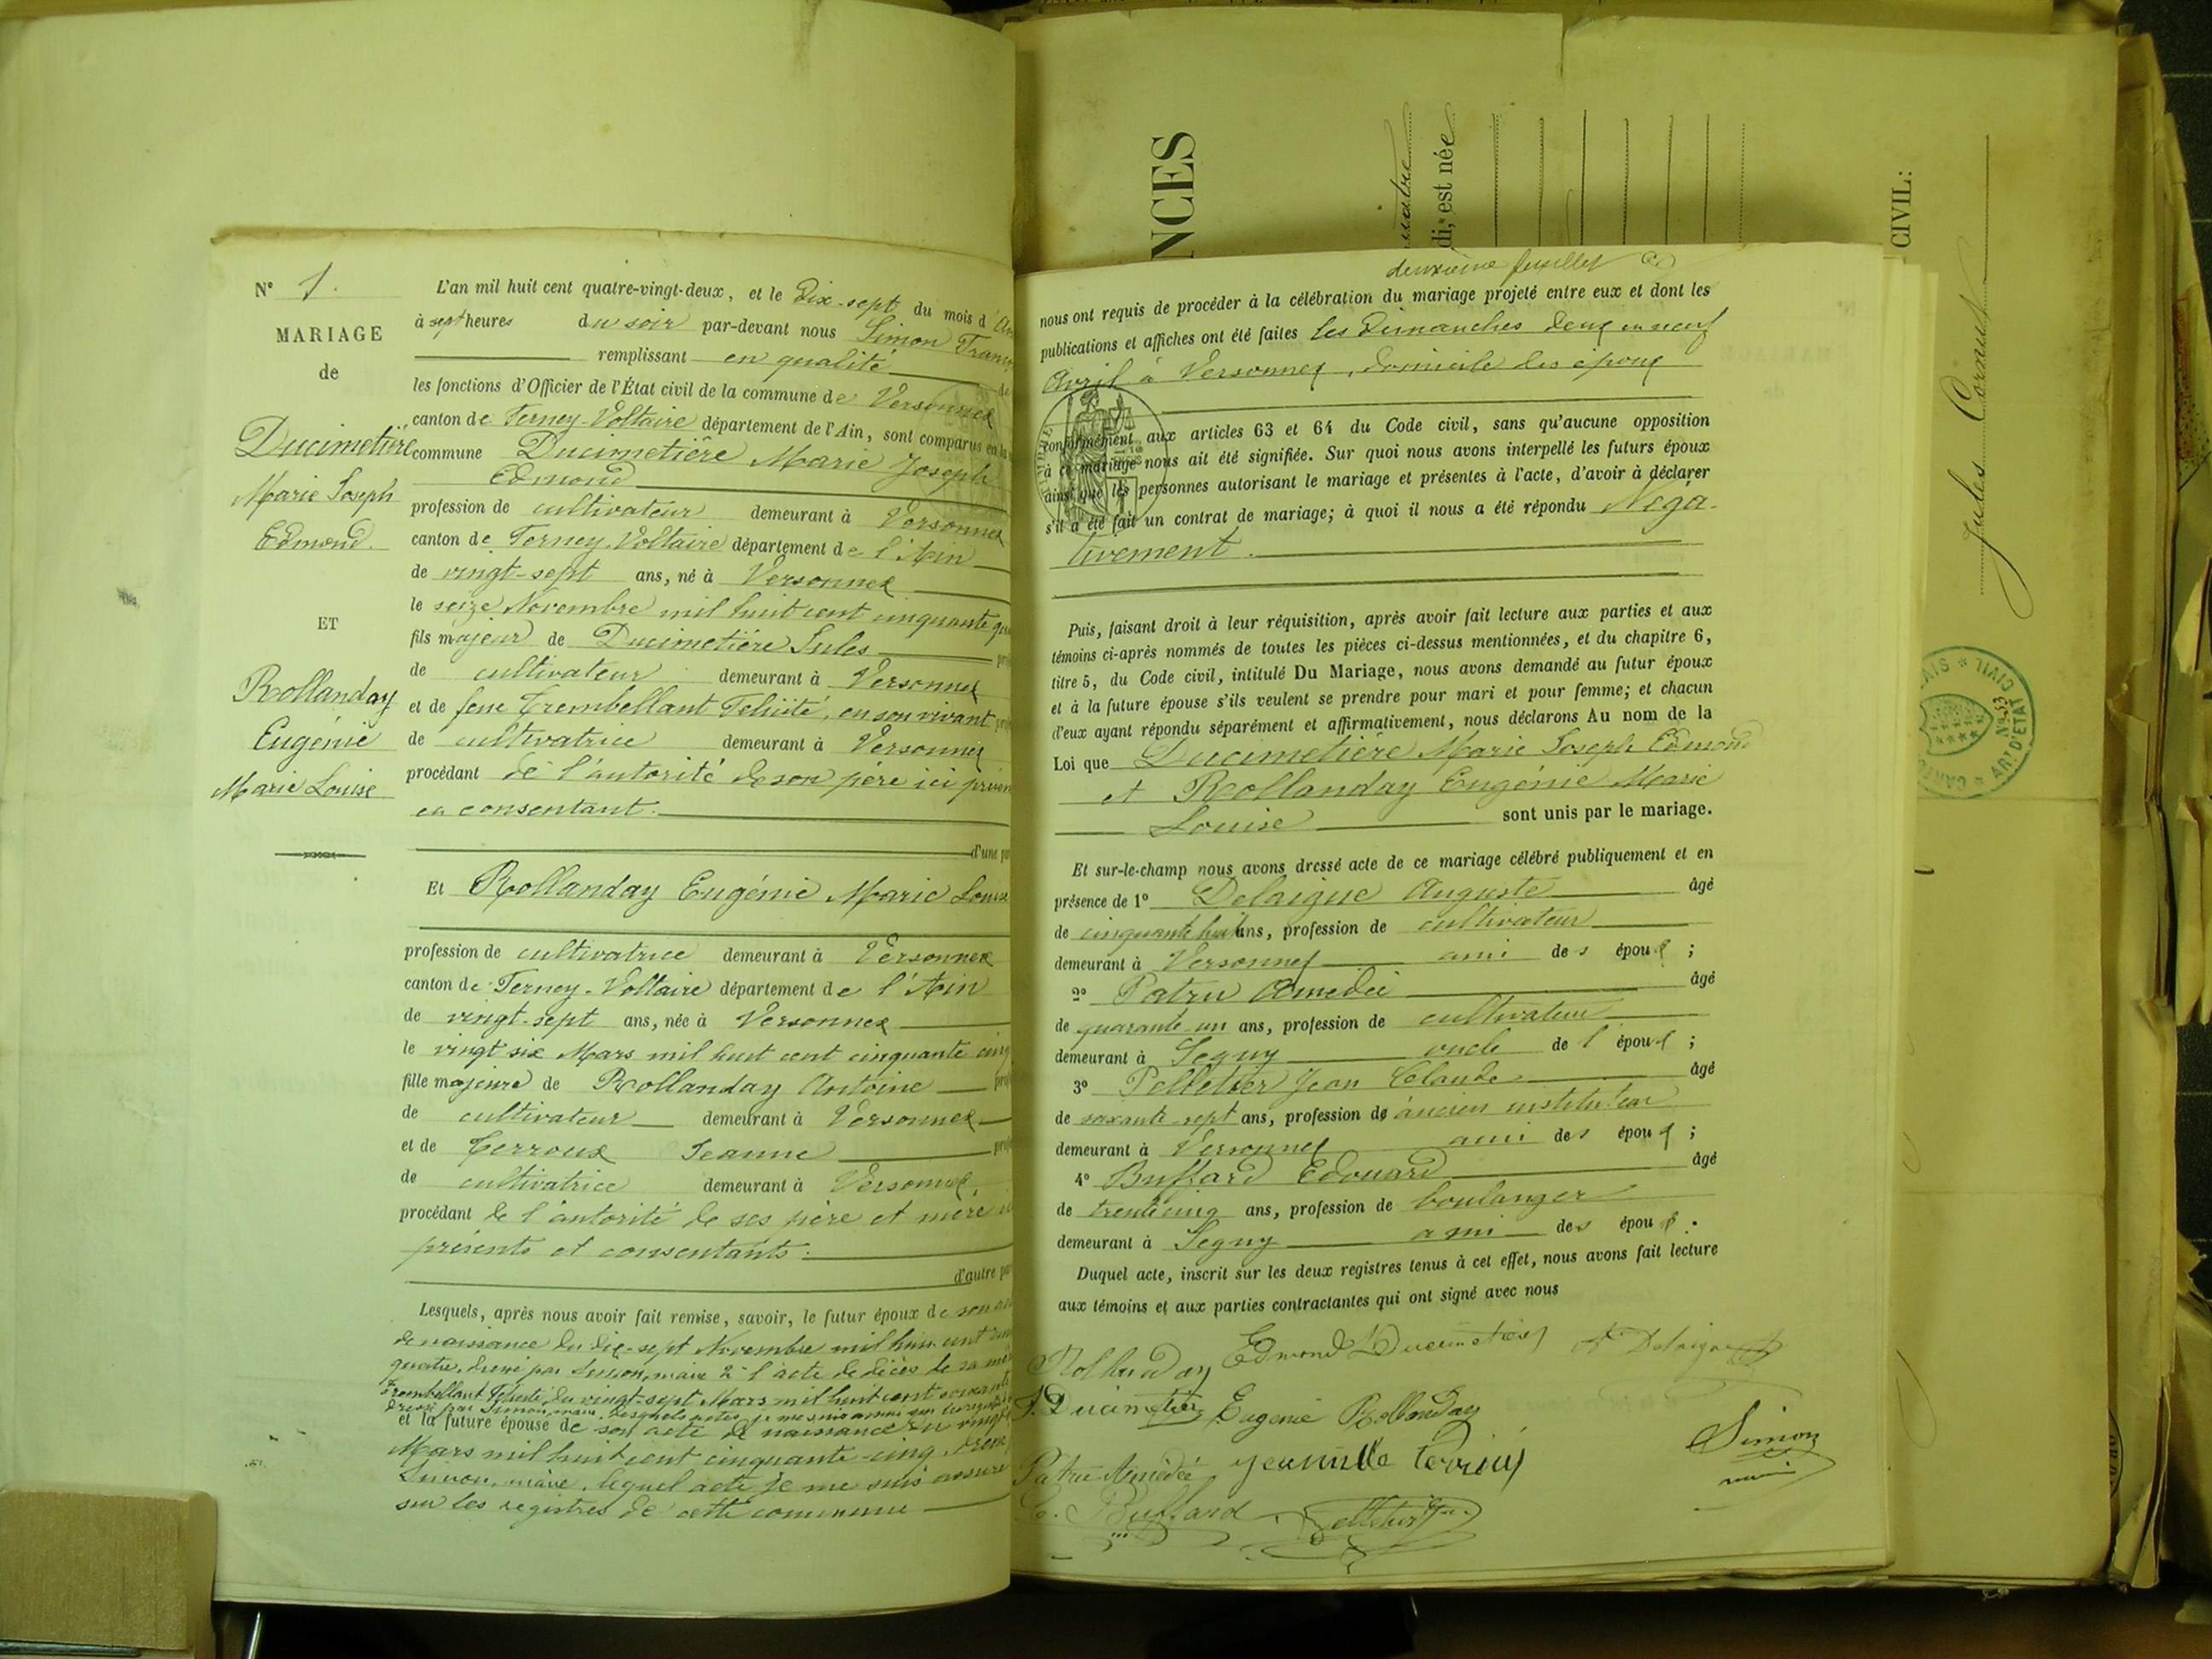 N° 1.
MARIAGE
de
Ducimetière
Marie Joseph
Edmond.
ET
Rollanday
Eugénie
Marie Louise
L'an mil huit cent quatre-vingt-deux, et le Dix-sept du mois d'
à sept heures du soir par-devant nous Simon
remplissant en qualité
les fonctions d'Officier de l'État civil de la commune de Versonnex
canton de Ferney-Voltaire département de l'Ain, sont comparus en la
commune Ducimetière Marie Joseph
Edmond
profession de cultivateur demeurant à Versonnex
canton de Ferney-Voltaire département de l'Ain
de vingt-sept ans, né à Versonnex
le seize Novembre mil huit cent cinquante
fils majeur de Ducimetière Jules
de cultivateur demeurant à Versonnex
et de feue Trembellant Félicité, en son vivant
de cultivatrice demeurant à Versonnex
procédant de l'autorité de son père ici
en consentant.
d'une
Et Rollanday Eugénie Marie Louise
profession de cultivatrice demeurant à Versonnex
canton de Ferney-Voltaire département de l'Ain
de vingt-sept ans, née à Versonnex
le vingt six Mars mil huit cent cinquante
fille majeure de Rollanday Antoine
de cultivateur demeurant à Versonnex
et de Perroux Jeanne
de cultivatrice demeurant à Versonnex,
procédant de l'autorité de ses père et mère
présents et consentants.
d'autre
Lesquels, après nous avoir fait remise, savoir, le futur époux de son
de naissance du dix-sept Novembre mil huit cent
quatre, dressé par Simon, maire 2° l'acte de décès de sa
Trembellant Félicité, du vingt-sept Mars mil huit cent
dressé par Simon, maire, desquels actes je me suis assuré sur
et la future épouse de son acte de naissance du vingt
Mars mil huit cent cinquante-cinq, dressé
Simon, maire, lequel acte je me suis assuré
sur les registres de cette commune
deuxième feuillet
nous ont requis de procéder à la célébration du mariage projeté entre eux et dont les
publications et affiches ont été faites les Dimanches deux en neuf
Avril à Versonnex, domicile des époux
conformément aux articles 63 et 64 du Code civil, sans qu'aucune opposition
à ce mariage nous ait été signifiée. Sur quoi nous avons interpellé les futurs époux
ainsi que les personnes autorisant le mariage et présentes à l'acte, d'avoir à déclarer
s'il a été fait un contrat de mariage; à quoi il nous a été répondu Néga-
tivement.
Puis, faisant droit à leur réquisition, après avoir fait lecture aux parties et aux
témoins ci-après nommés de toutes les pièces ci-dessus mentionnées, et du chapitre 6,
titre 5, du Code civil, intitulé Du Mariage, nous avons demandé au futur époux
et à la future épouse s'ils veulent se prendre pour mari et pour femme; et chacun
d'eux ayant répondu séparément et affirmativement, nous déclarons Au nom de la
Loi que Ducimetière Marie Joseph Edmond
et Rollanday Eugénie Marie
Louise sont unis par le mariage.
Et sur-le-champ nous avons dressé acte de ce mariage célébré publiquement et en
présence de 1° Delaigue Auguste âgé
de cinquante huit ans, profession de cultivateur
demeurant à Versonnex ami des époux;
2° Patru Amédée âgé
de quarante un ans, profession de cultivateur
demeurant à Segny oncle de l'époux;
3° Pelletier Jean Claude âgé
de soixante-sept ans, profession de ancien instituteur
demeurant à Versonnex ami des époux;
4° Buffard Edouard âgé
de trente cinq ans, profession de boulanger
demeurant à Segny ami des époux.
Duquel acte, inscrit sur les deux registres tenus à cet effet, nous avons fait lecture
aux témoins et aux parties contractantes qui ont signé avec nous
Rollanday Edmond Ducimetière A Delaigue
J. Ducimetière Eugénie Rollanday
Simon
Patru Amédée
E. Buffard Pelletier
NCES
di, est née
CIVIL:
Jules Cornut
CIVIL
N° 33
ART D'ETAT